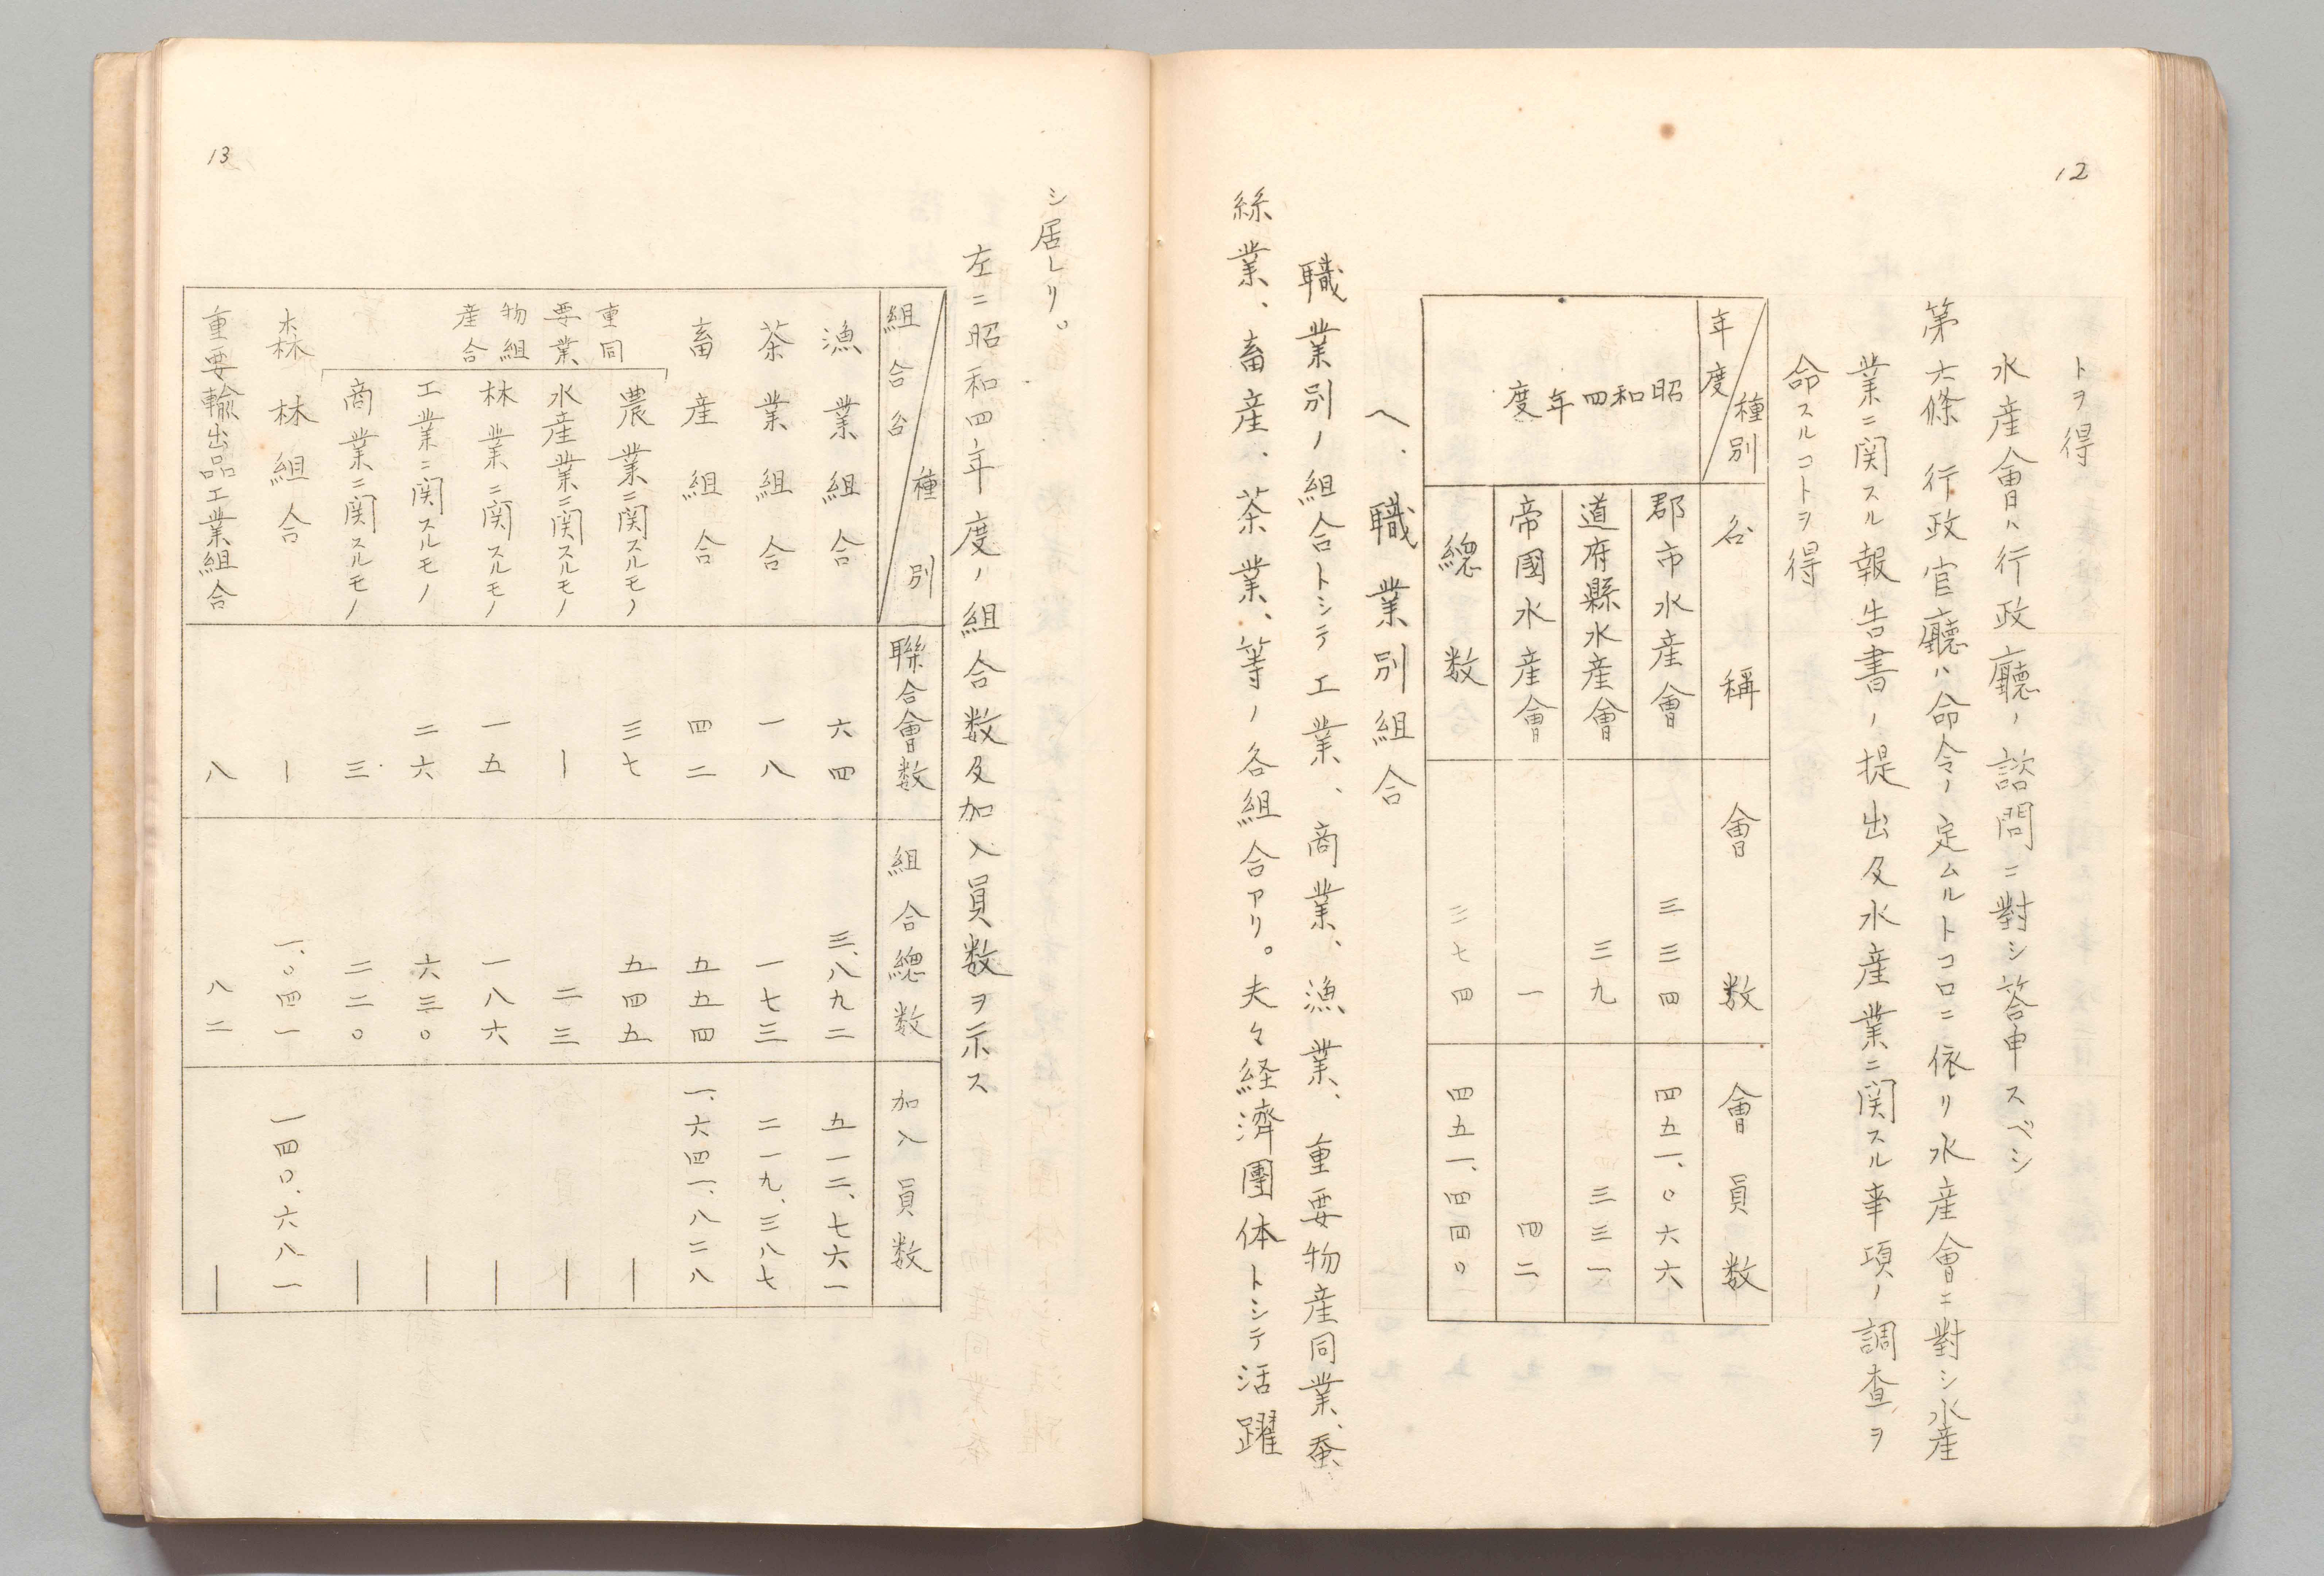 12
トヲ得
水産會ハ行政廳ノ諮問ニ對シ答申スベシ
第六條 行政官廳ハ命令ノ定ムルトコロニ依リ水産會ニ對シ水産
業ニ関スル報告書ノ提出及水産業ニ関スル事項ノ調査ヲ
命スルコトヲ得
年度 種別 名稱 會数 會員数
昭和四年度
郡市水産會 三三四 四五一、〇六六
道府縣水産會 三九 三三一
帝國水産會 一 四二
總数 三七四 四五一、四四〇
ヘ、職業別組合
職業別ノ組合トシテ工業、商業、漁業、重要物産同業、蚕
絲業、畜産、茶業、等ノ各組合アリ。夫々経済團体トシテ活躍
13
シ居レリ。
左ニ昭和四年度ノ組合数及加入員数ヲ示ス
組合名 種別 聯合會数 組合總数 加入員数
漁業組合 六四 三、八九二 五一二、七六一
茶業組合 一八 一七三 二一九、三八七
畜産組合 四二 五五四 一、六四一、八二八
重要物産同業組合
農業ニ関スルモノ 三七 五四五 ―
水産業ニ関スルモノ ― 二三 ―
林業ニ関スルモノ 一五 一八六 ―
工業ニ関スルモノ 二六 六三〇 ―
商業ニ関スルモノ 三 二二〇 ―
森林組合 ― 一、〇四一 一四〇、六八一
重要輸出品工業組合 八 八二 ―